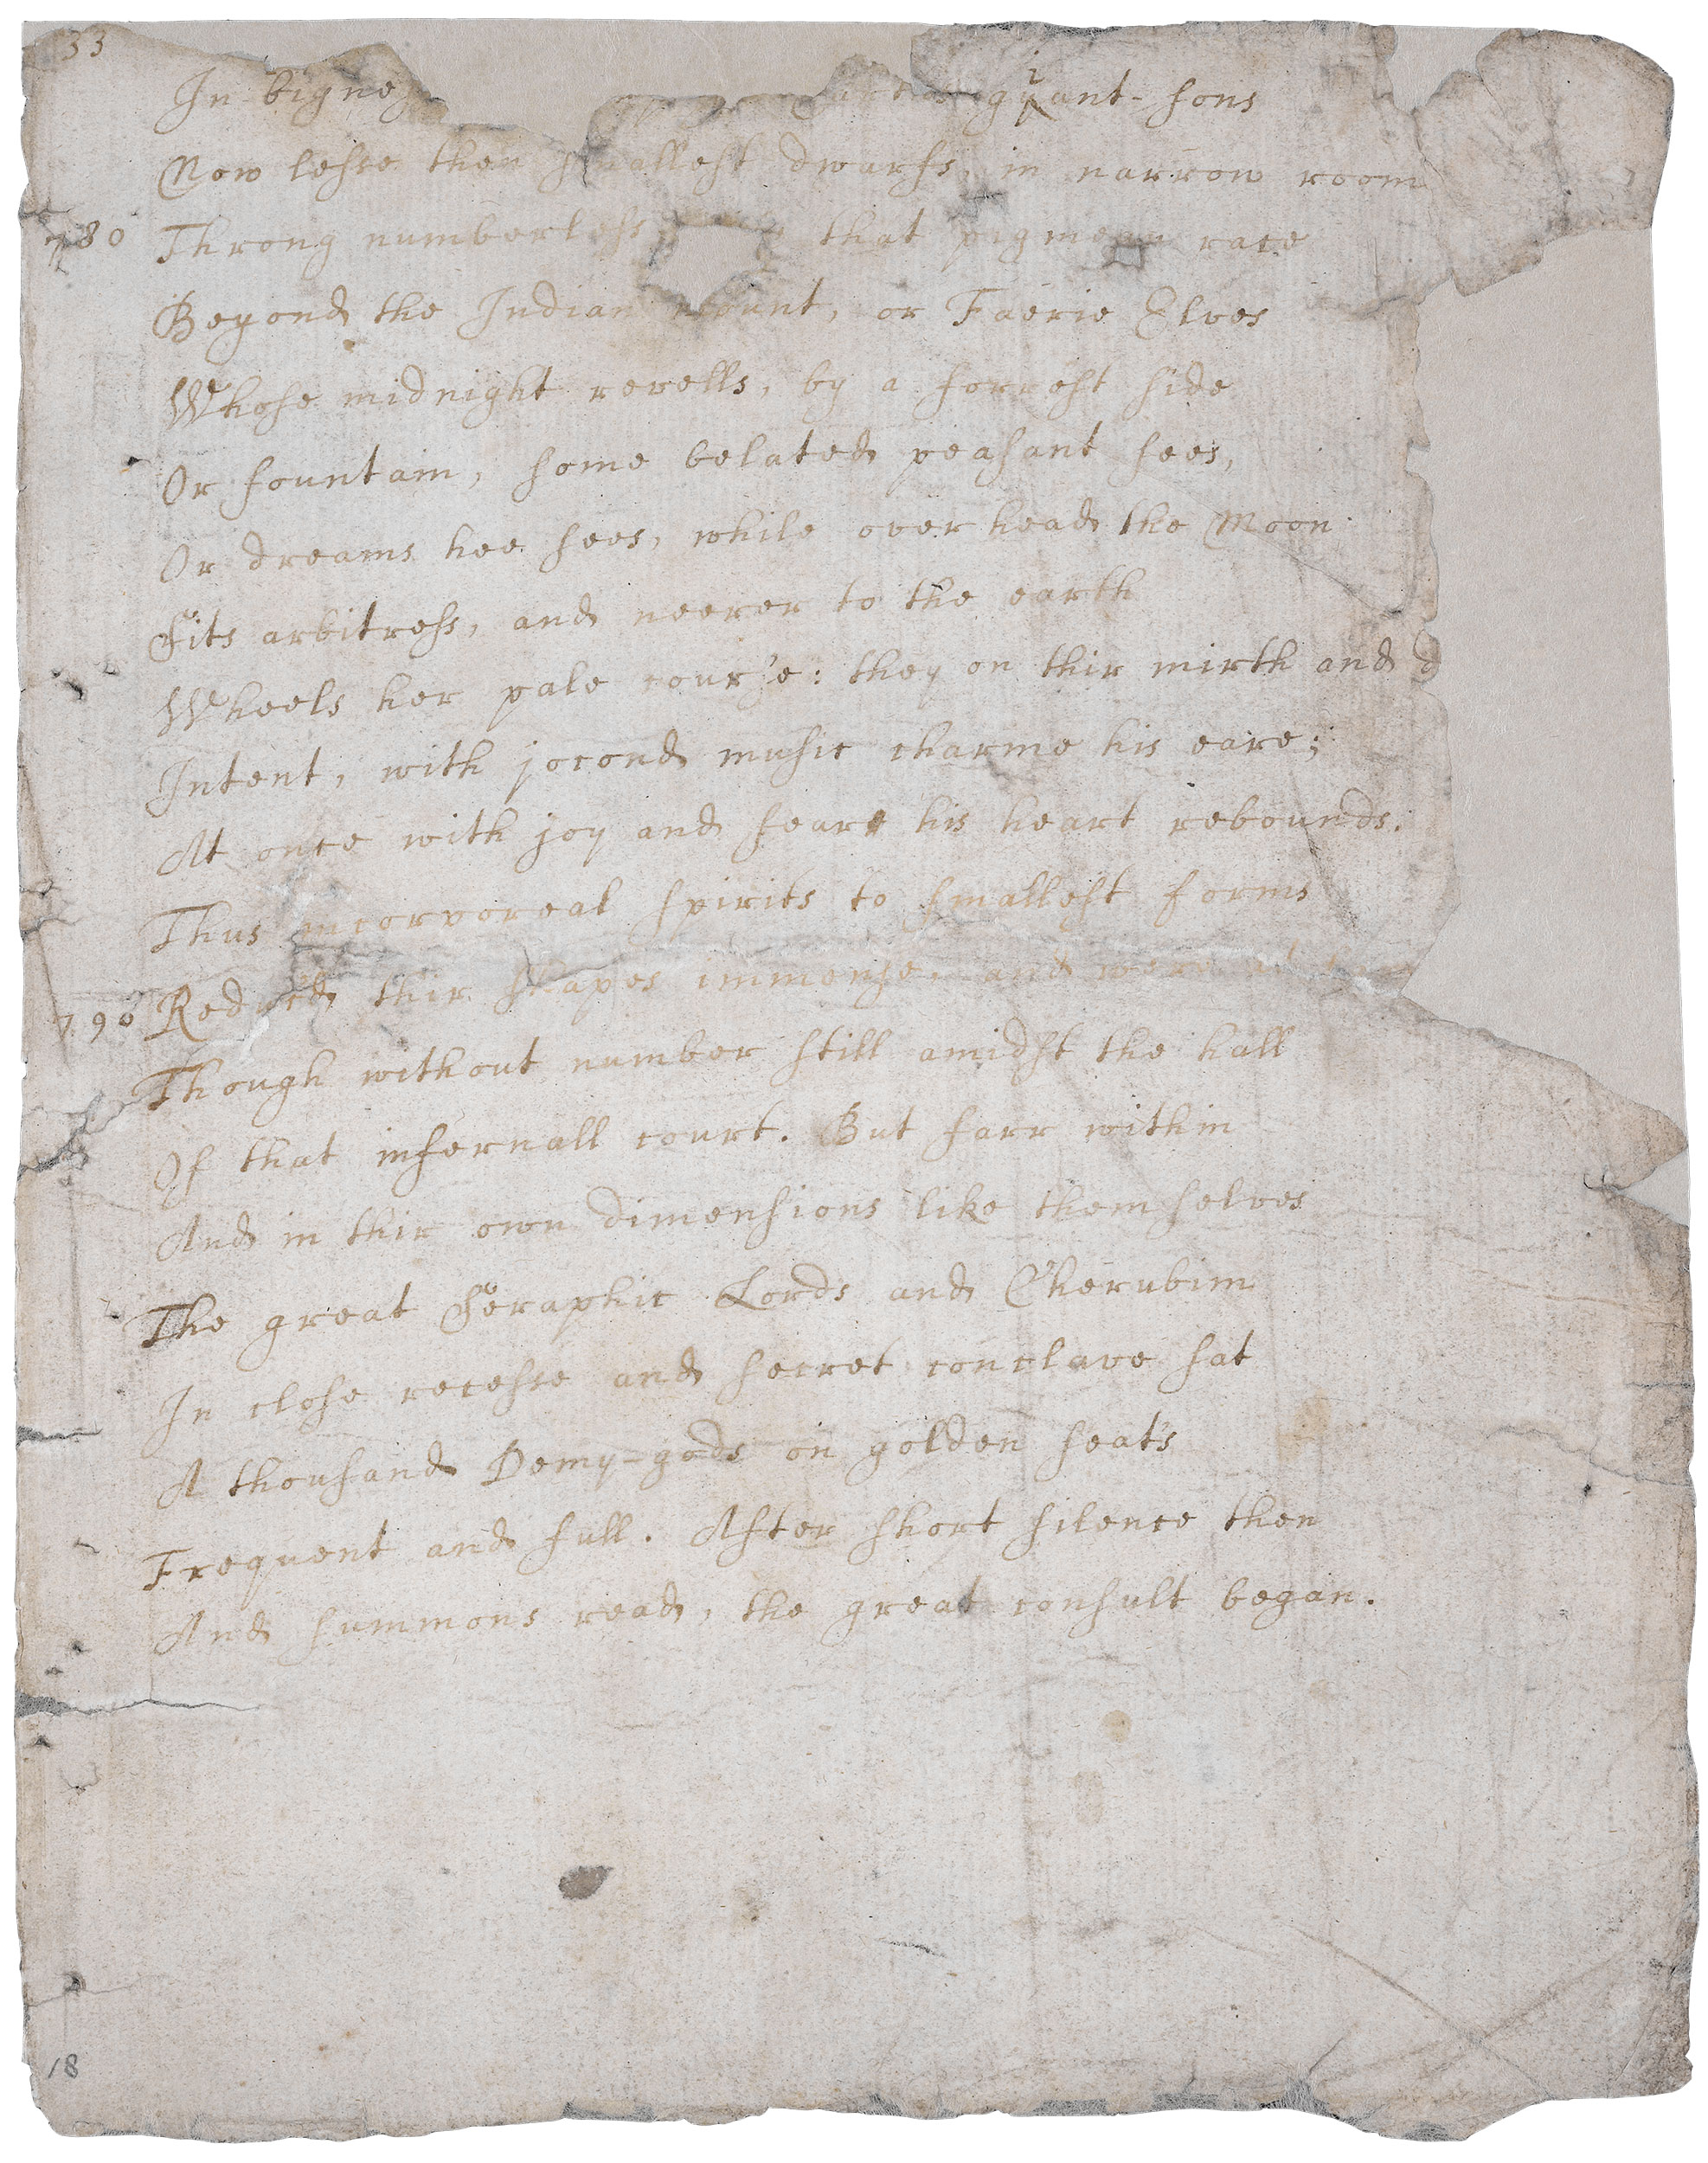 33
In bignes giant-sons
Now lesse then smallest dwarfs, in narrow room
780 Throng numberless that pigmean race
Beyond the Indian mount, or Faerie Elves
Whose midnight revells, by a forrest side
Or fountain, some belated peasant sees,
Or dreams hee sees, while over head the Moon
Sits arbitress, and neerer to the earth
Wheels her pale cours'e: they on thir mirth and d
Intent, with jocond music charme his eare;
At once with joy and feare his heart rebounds.
Thus incorporeal spirits to smallest forms
790 Reduc'd thir shapes immense, and were at
Though without number still amidst the hall
Of that infernall court. But farr within
And in thir own dimensions like themselves
The great Seraphic Lords and Cherubim
In close recesse and secret conclave sat
A thousand Demy-gods on golden seat's
Frequent and full. After short silence then
And summons read, the great consult began.
18